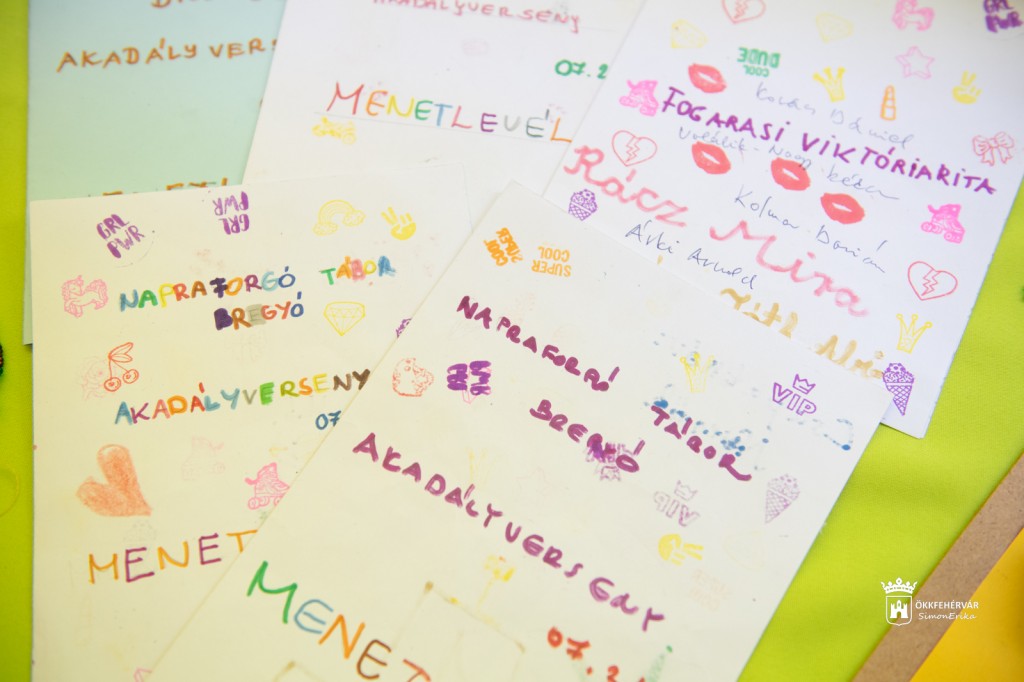 AKADÁLYVERS
AKADÁLYVERSENY
07.2
MENETLEVÉL
COOL
DUDE
GRL
PWR
Kovács Dániel
FOGARASI VIKTÓRIARITA
Rácz Mira
Kolmar Dorián
Árki Arnold
GRL
PWR
GRL
PWR
NAPRAFORGÓ TÁBOR
BREGYÓ
AKADÁLYVERSENY
07
MENET
SUPER
COOL
SUPER
COOL
NAPRAFORGÓ TÁBOR
BREGYÓ
VIP
VIP
AKADÁLYVERSENY
07.2
MENET
ÖKKFEHÉRVÁR
SimonErika